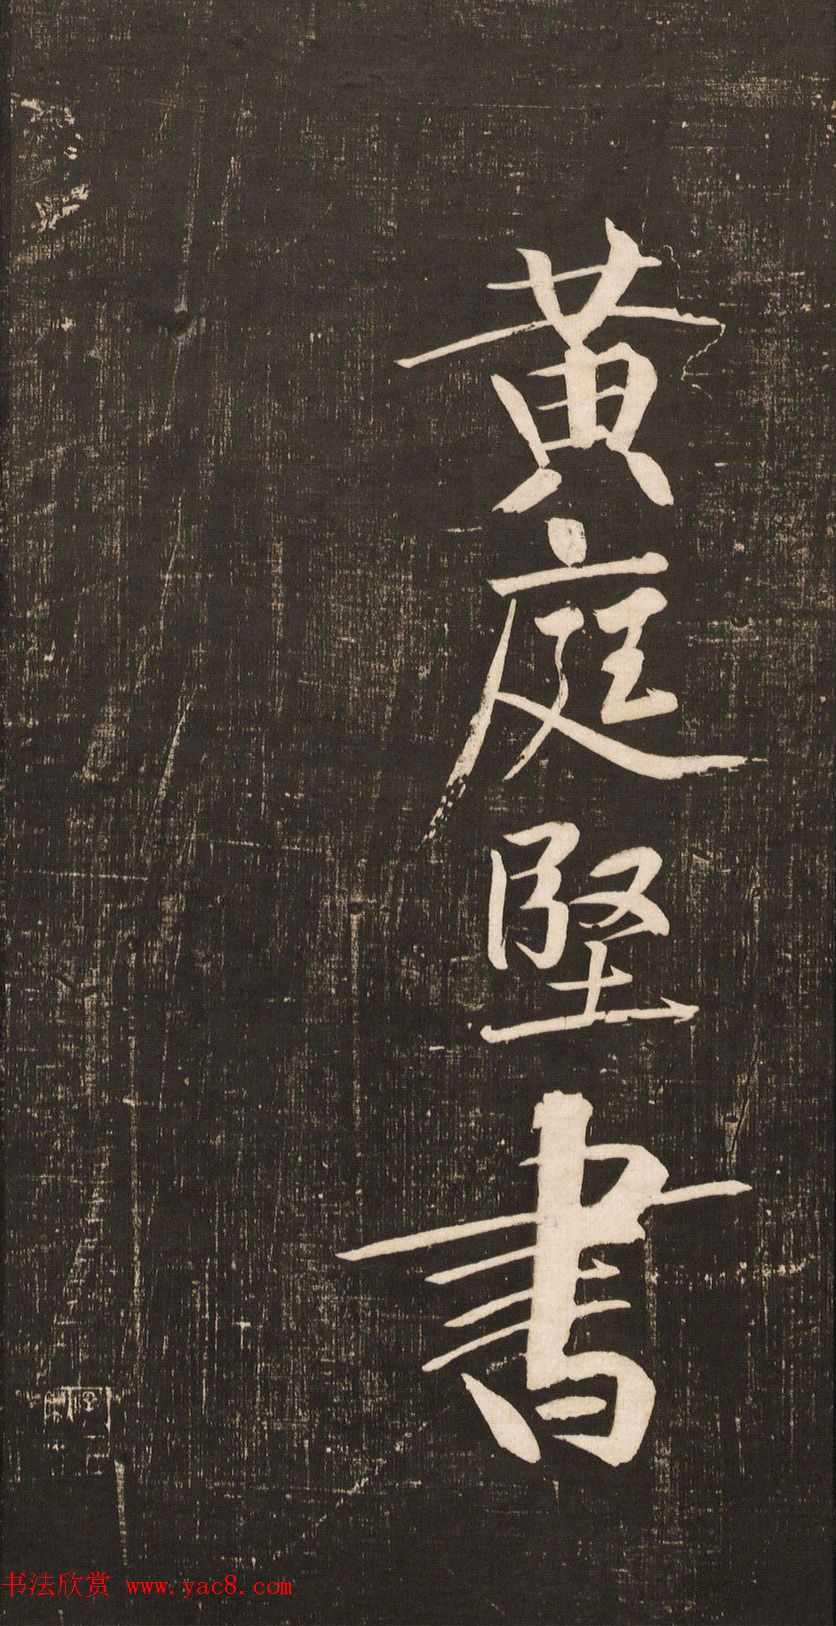 黄庭堅書
书法欣赏 www.yac8.com